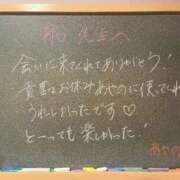 先生へ
会いに来てくれてありがとう!
貴重なお休みあやのに使ってくれ
うれしかったです♡
とーっても楽しかった!
あやの